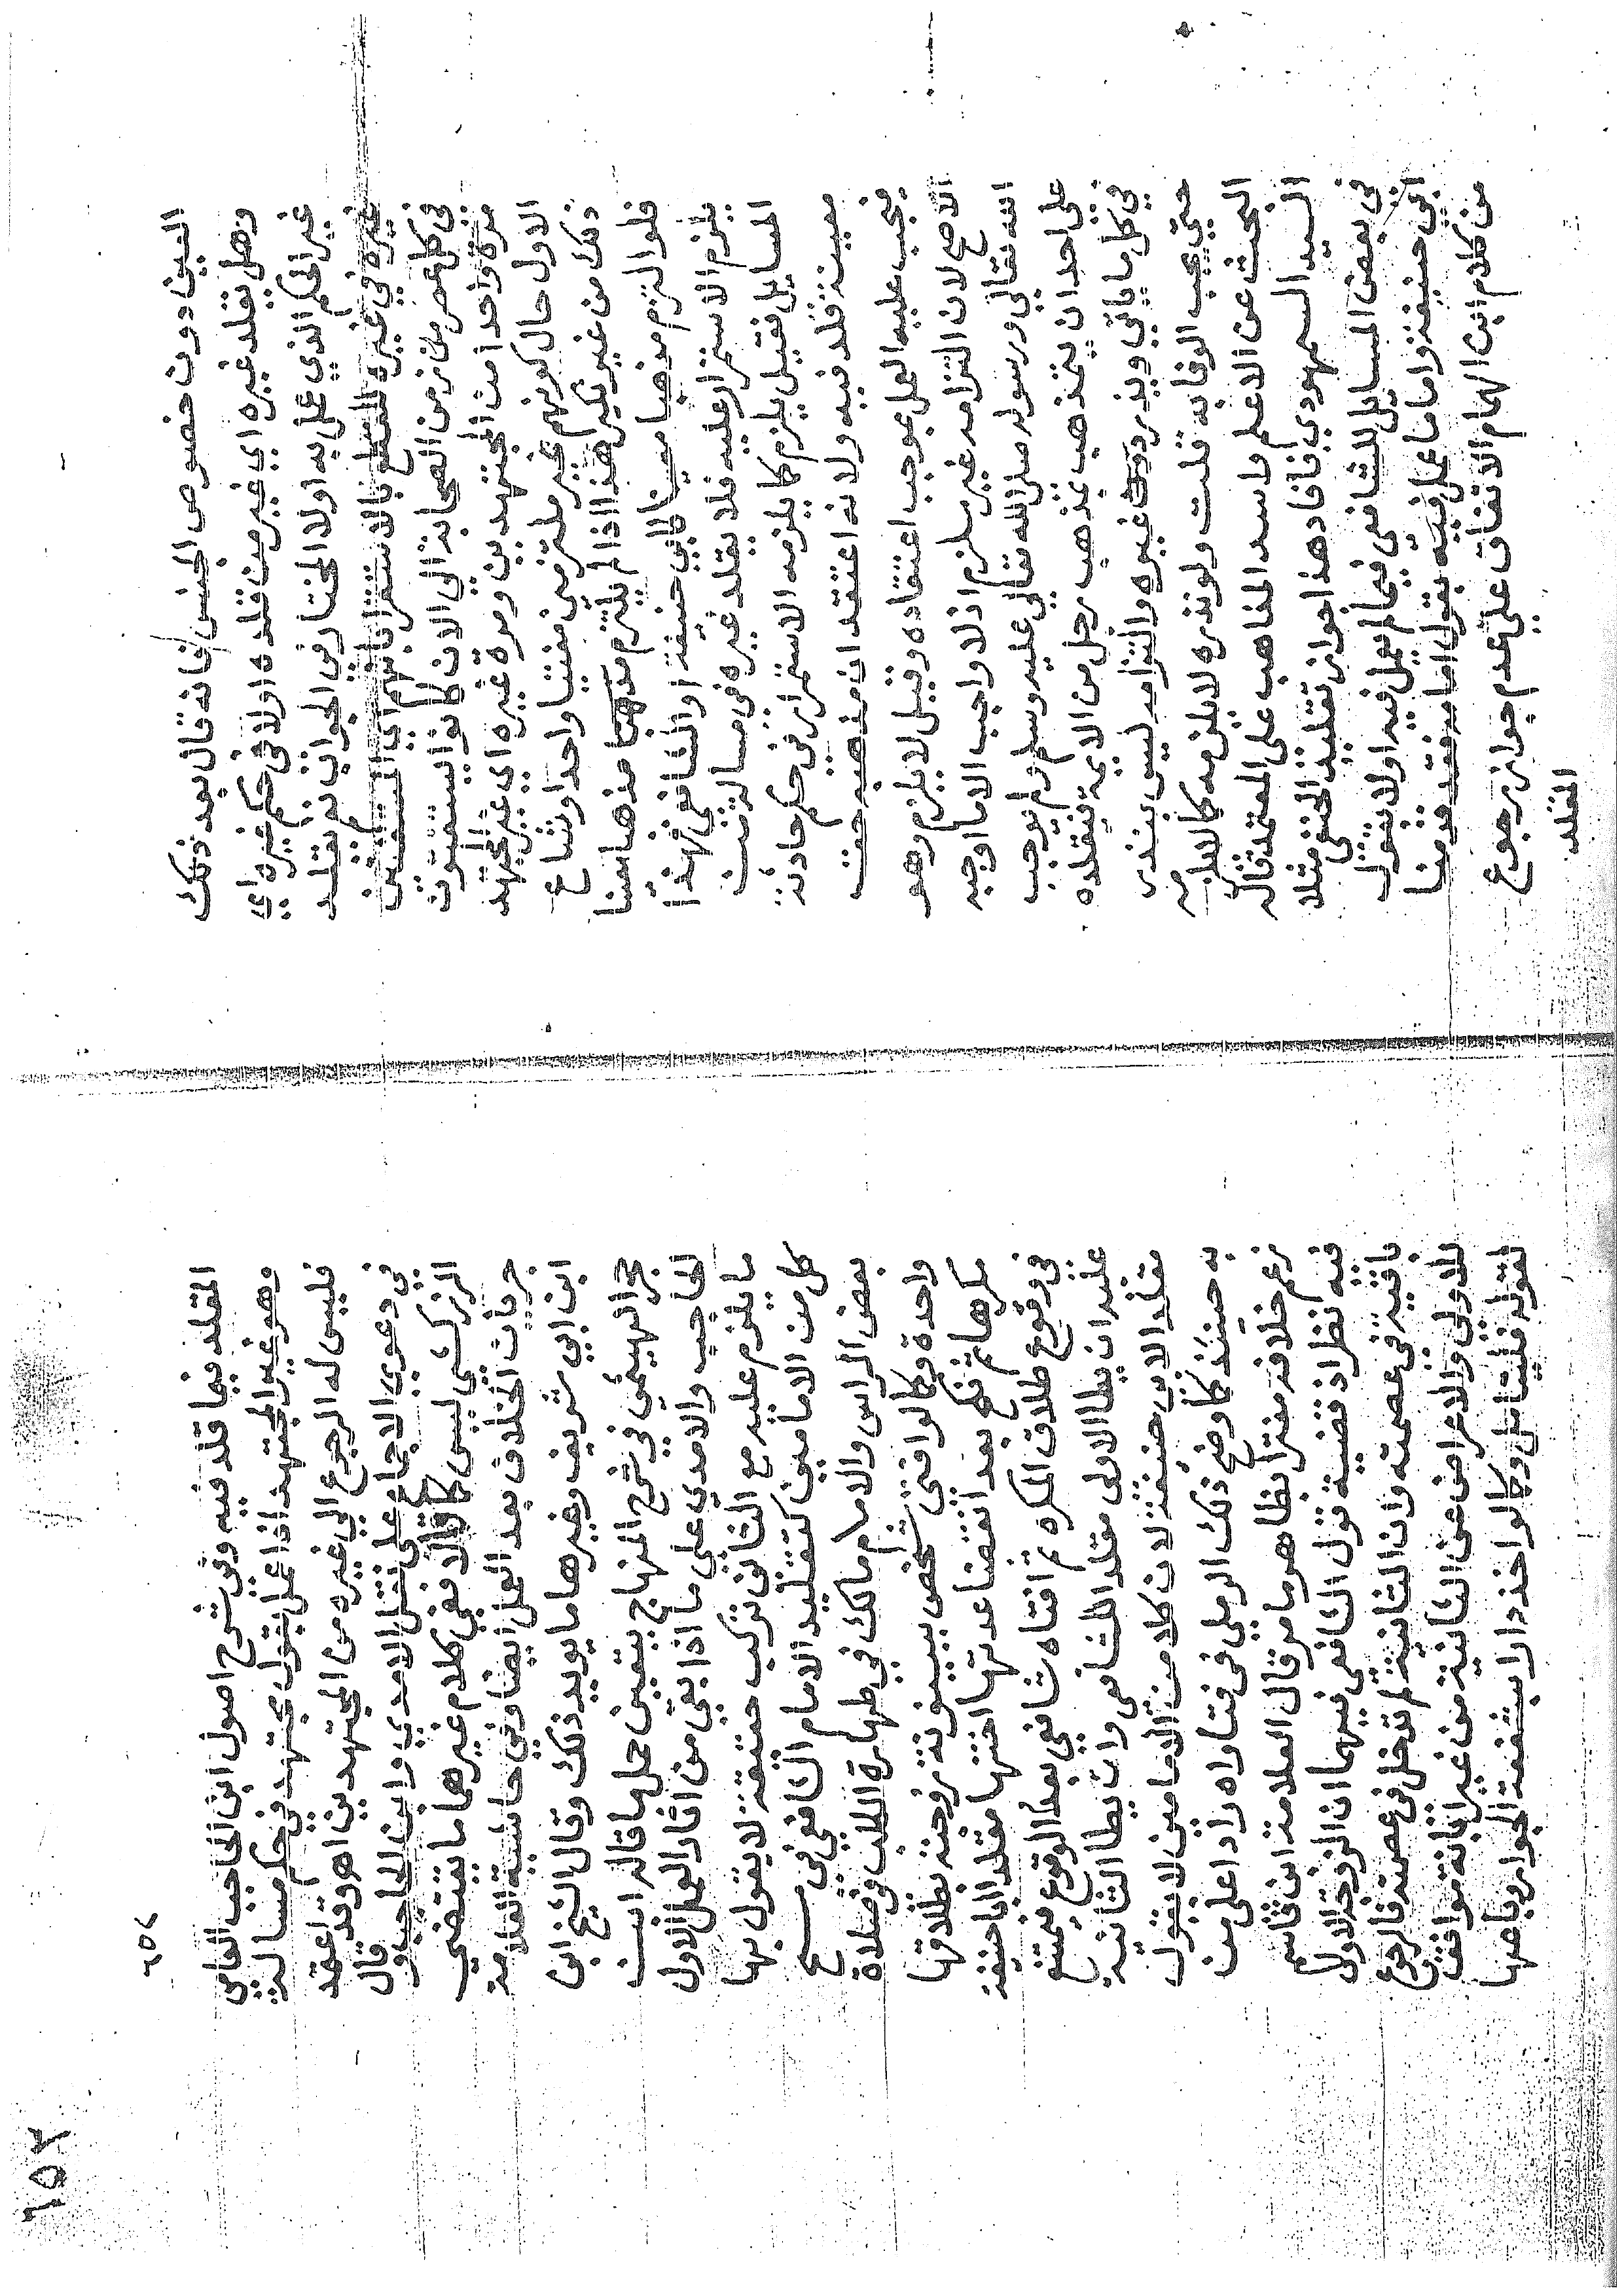 العين دون خصوص الجنس فانه قال بعد ذلك
وهل يقلد غيره اي غير من قلده اولا في حكم غيره اي
غير الحكم الذي عمل به اولا المختار في الجواب نعم يقلد
غيره في غيره للقطع بالاستقرا بانهم اي المستفتين
في كل عصر من زمن الصحابة الي الان كانوا يستفتون
مرة واحدا من المجتهدين ومرة غيره اي غير المجتهد
الاول حال كونهم غير ملتزمين مفتيا واحدا وشاع
ذلك من غير نكير هذا اذا لم يلتزم مذهبا معينا
فلو التزم مذهبا معينا كابي حنيفة او الشافعي فهذا
يلزم الاستمرار عليه فلا يقلد غيره في مسالة من
المسايل فقيل يلزم كما يلزمه الاستمرار في حكم حادثة
معينة قلد فيه ولانه اعتقد ان مذهبه حق
فيجب عليه العمل بموجب اعتقاده وقيل لا يلزم وهو
الاصح لان التزامه غير ملزم اذ لا واجب الا ما اوجبه
الله تعالي ورسوله صلى الله تعالي عليه وسلم ولم يوجب
على احد ان يتمذهب بمذهب رجل من الايمة فيقلده
في كل ما ياتي ويذر دون غيره والتزامه ليس بنذر
حتي يجب الوفا به قلت ولو نذره لا يلزمه كما لا يلزمه
البحث عن الاعلم واسد المذاهب على المعتمد قاله
السيد السمهودي فافاد هذا جواز تقليد الحنفي مثلا
في بعض المسايل للشافعي فيما لم يعمل فيه اولا بقول
ابي حنيفة واما ما عمل فيه بقول امامه فقد قدمنا
من كلام ابن الهمام الاتفاق علي عدم جواز رجوع
المقلد
٢٥٤
المقلد فيما قلد فيه وفي شرح اصول ابن الحاجب العامي
وهو غير المجتهد اذا عمل بقول مجتهد في حكم مسالة
فليس له الرجوع الي غيره من المجتهدين اهـ وقد اعتمد
في دعوي الاجماع على نقل الامدي وابن الحاجب وقال
الزركشي ليس كما قالا ففي كلام غيرهما ما يقتضي
جريان الخلاف بعد العمل ايضا وفي حاشية العلامة
ابن ابي شريف وغيرها ما يويد ذلك وقال الشيخ ابن
حجر الهيتمي في شرح المنهاج يتعين حمل ما قاله ابن
الحاجب والامدي على ما اذا بقي من اثار العمل الاول
ما يلزم عليه مع الثاني تركب حقيقة لا يقول بها
كل من الامامين كتقليد الامام الشافعي في مسح
بعض الراس والامام مالك في طهارة الكلب في صلاة
واحدة وكما لو افتى شخص ببينونة زوجته بطلاقها
مكرها ثم نكح بعد انقضا عدتها اختها مقلدا ابا حنيفة
في وقوع طلاق المكره ثم افتاه شافعي بعدم الوقوع فيمتنع
عليه ان يطا الاولى مقلدا للشافعي وان يطا الثانية
مقلدا لابي حنيفة لان كلا من الامامين لا يقول
به حينئذ كما اوضح ذلك الرملي في فتاواه رادا على من
زعم خلافه مغترا بظاهر ما مر قال العلامة ابن قاسم
فيه نظر اذ قضية قول الشافعي فيهما ان الزوجة الاولى
باقية في عصمته وان الثانية لم تدخل في عصمته فالرجوع
للاولى والاعراض عن الثانية من غير ابانة موافق
لقوله فليتامل وكما لو اخذ دارا بشفعة الجوار وباعها
٢٥٢